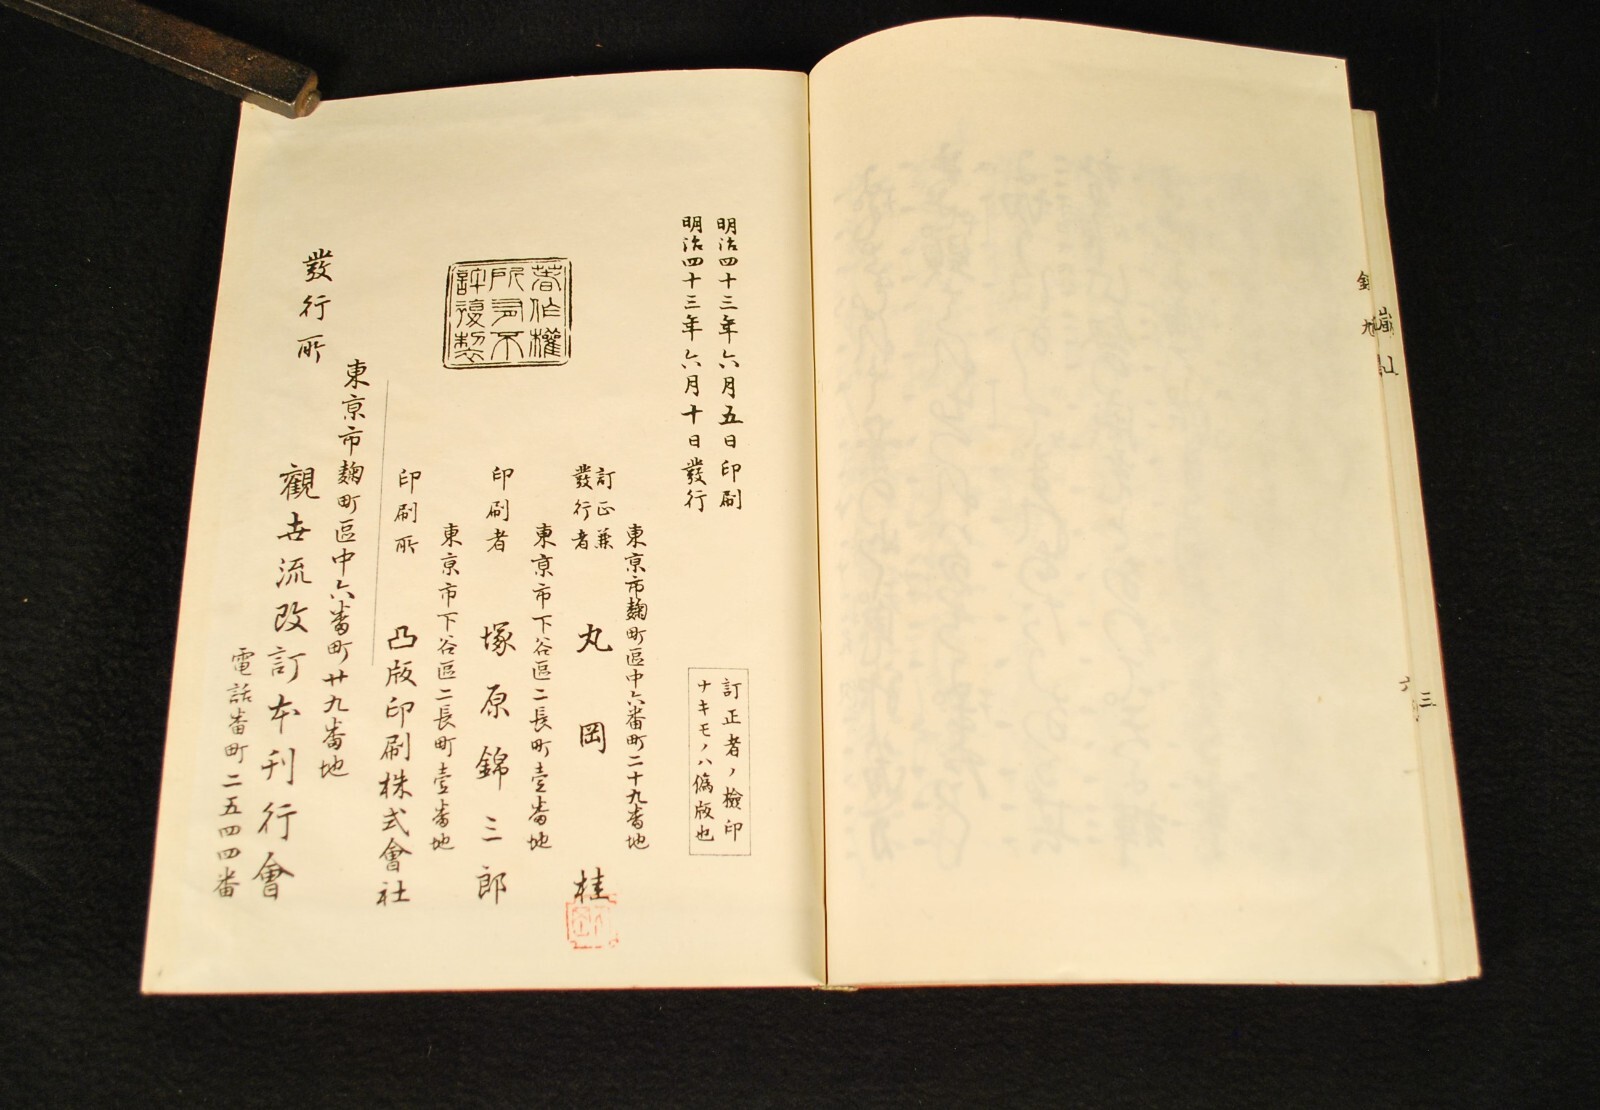 明治四十三年六月五日印刷
明治四十三年六月十日發行
訂正者ノ檢印
ナキモノハ僞版也
著作權
所有不
許複製
東京市麹町區中六番町二十九番地
訂正兼
發行者
丸岡桂
東京市下谷區二長町壹番地
印刷者 塚原錦三郎
東京市下谷區二長町壹番地
印刷所 凸版印刷株式會社
發行所
東京市麹町區中六番町廿九番地
觀世流改訂本刊行會
電話番町二五四四番